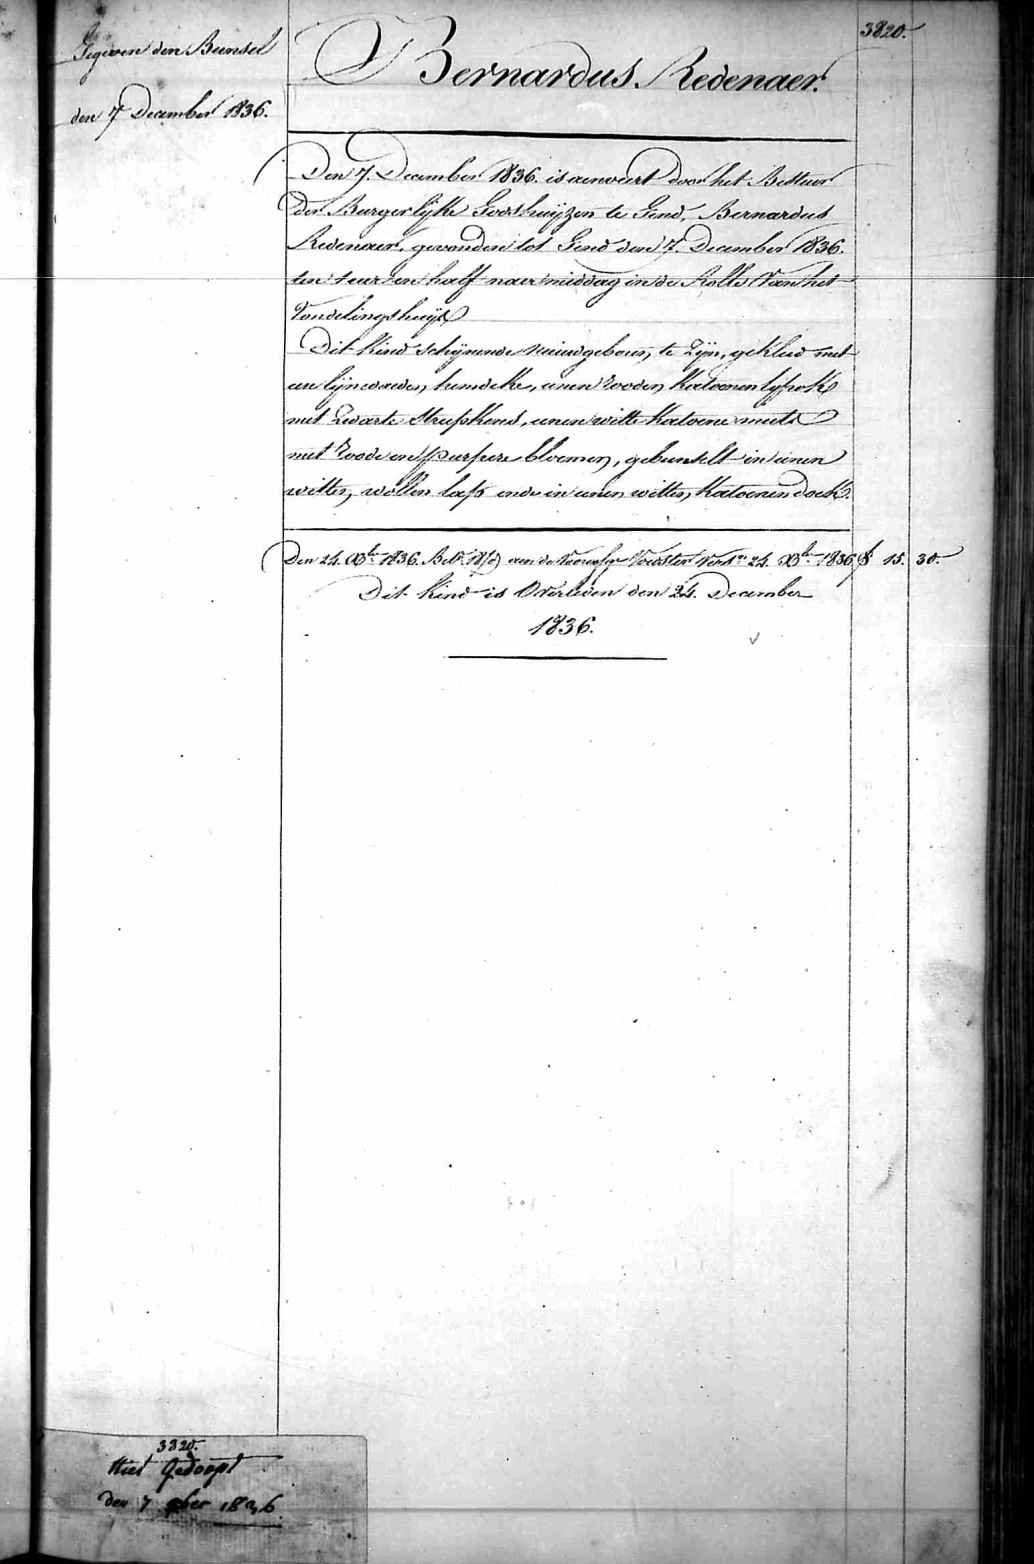 3820.
Gegeven den Bunsel
den 7 December 1836.
Bernardus. Redenaer.
Den 7. December 1836. is aenveert door het Bestuer
der Burgerlijke Godshuijzen te Gend, Bernardus
Redenaer, gevonden tot Gend den 7. December 1836.
ten 1 eur en half naer middag in de Rolle van het
Vondelingshuijs
Dit kind schijnende nieuwgeboren te zijn, gekleed met
een lijnwaeden hemdeke, eenen rooden katoenen lijfrok
met zwarte streepkens, eenen witte katoene muts
met roode en purpere bloemen, gebunselt in eenen
witten wollen lap ende in eenen witten katoenen doek.
Den 24. Xb. 1836. aen de Voorster 24. Xb. 1836 15. 30.
Dit kind is Overleden den 24. December
1836.
3820.
Niet Gedoopt
den 7 xber 1836.